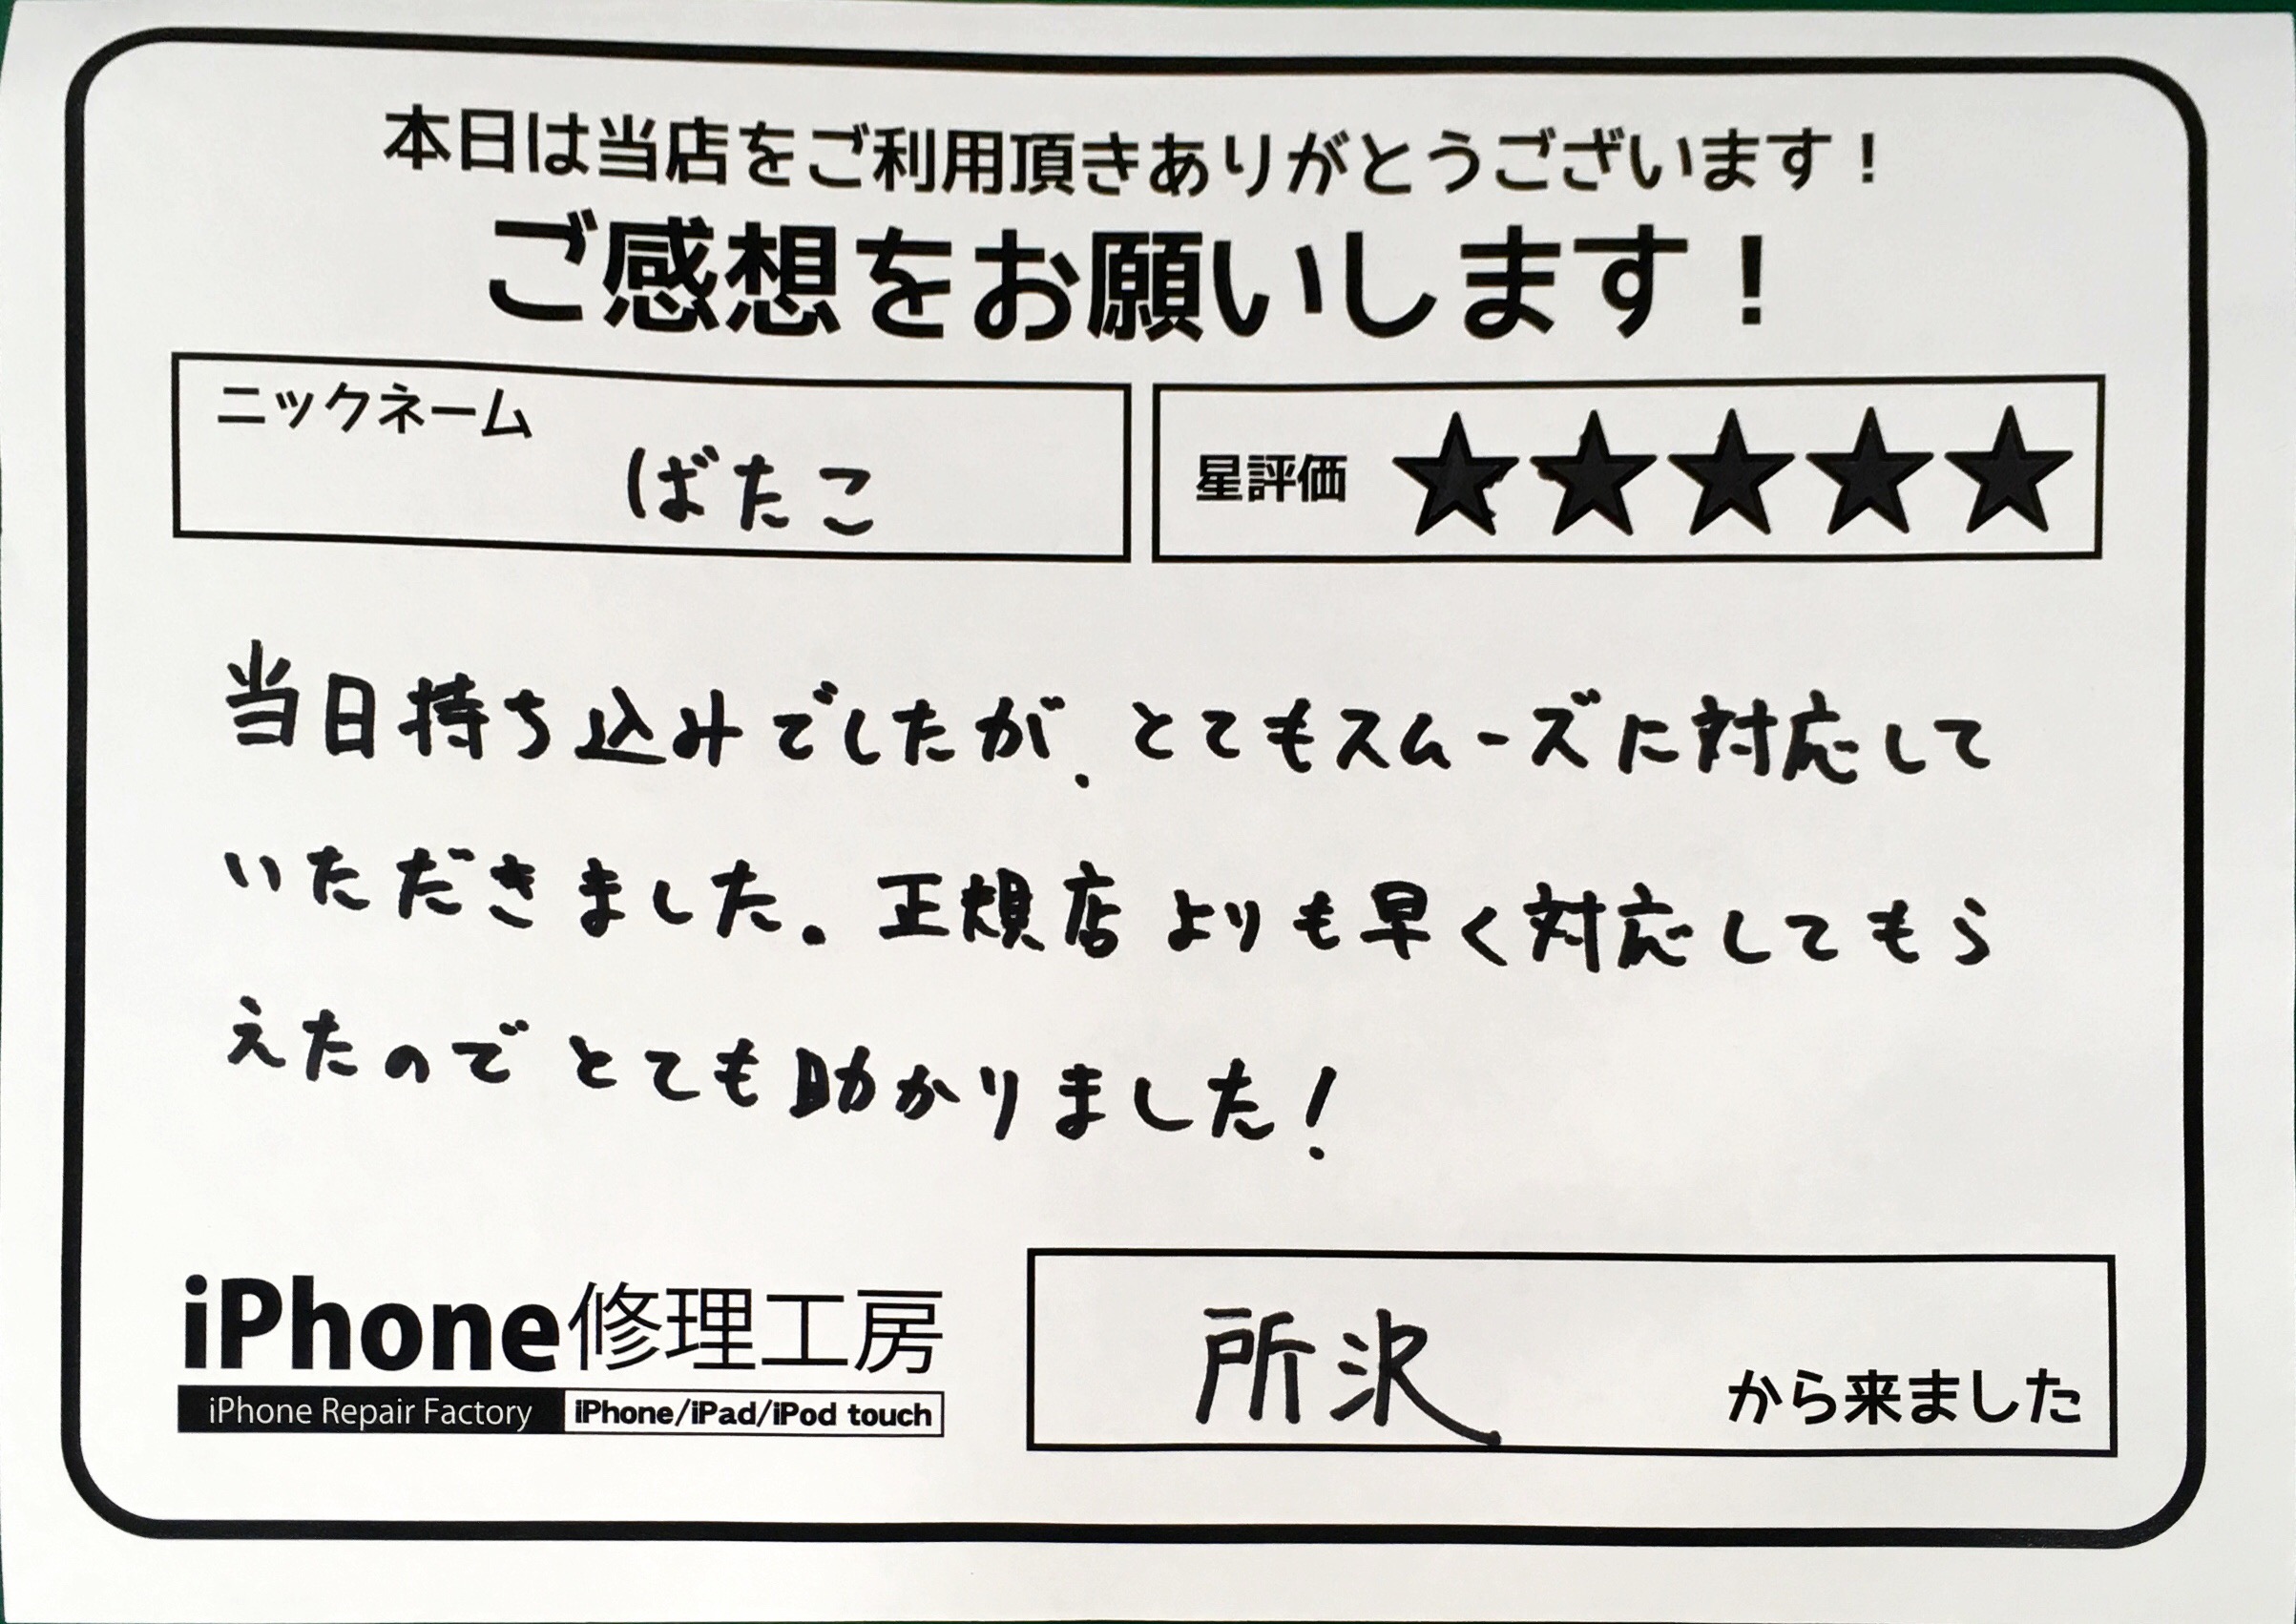 本日は当店をご利用頂きありがとうございます！
ご感想をお願いします！
ニックネーム
ばたこ
星評価 ★★★★★
当日持ち込みでしたが、とてもスムーズに対応して
いただきました。正規店よりも早く対応してもら
えたのでとても助かりました！
iPhone修理工房
iPhone Repair Factory iPhone/iPad/iPod touch
所沢
から来ました